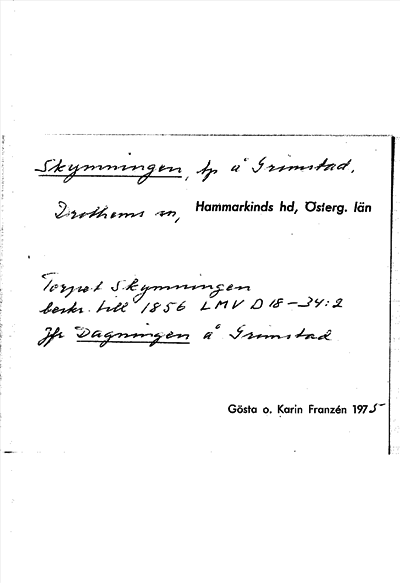 Skymningen, tp å Grimstad.
Drothems sn, Hammarkinds hd, Österg. län
Torpet Skymningen
beskr. till 1856 LMV D 18-34:2
Jfr Dagningen å Grimstad
Gösta o. Karin Franzén 1975